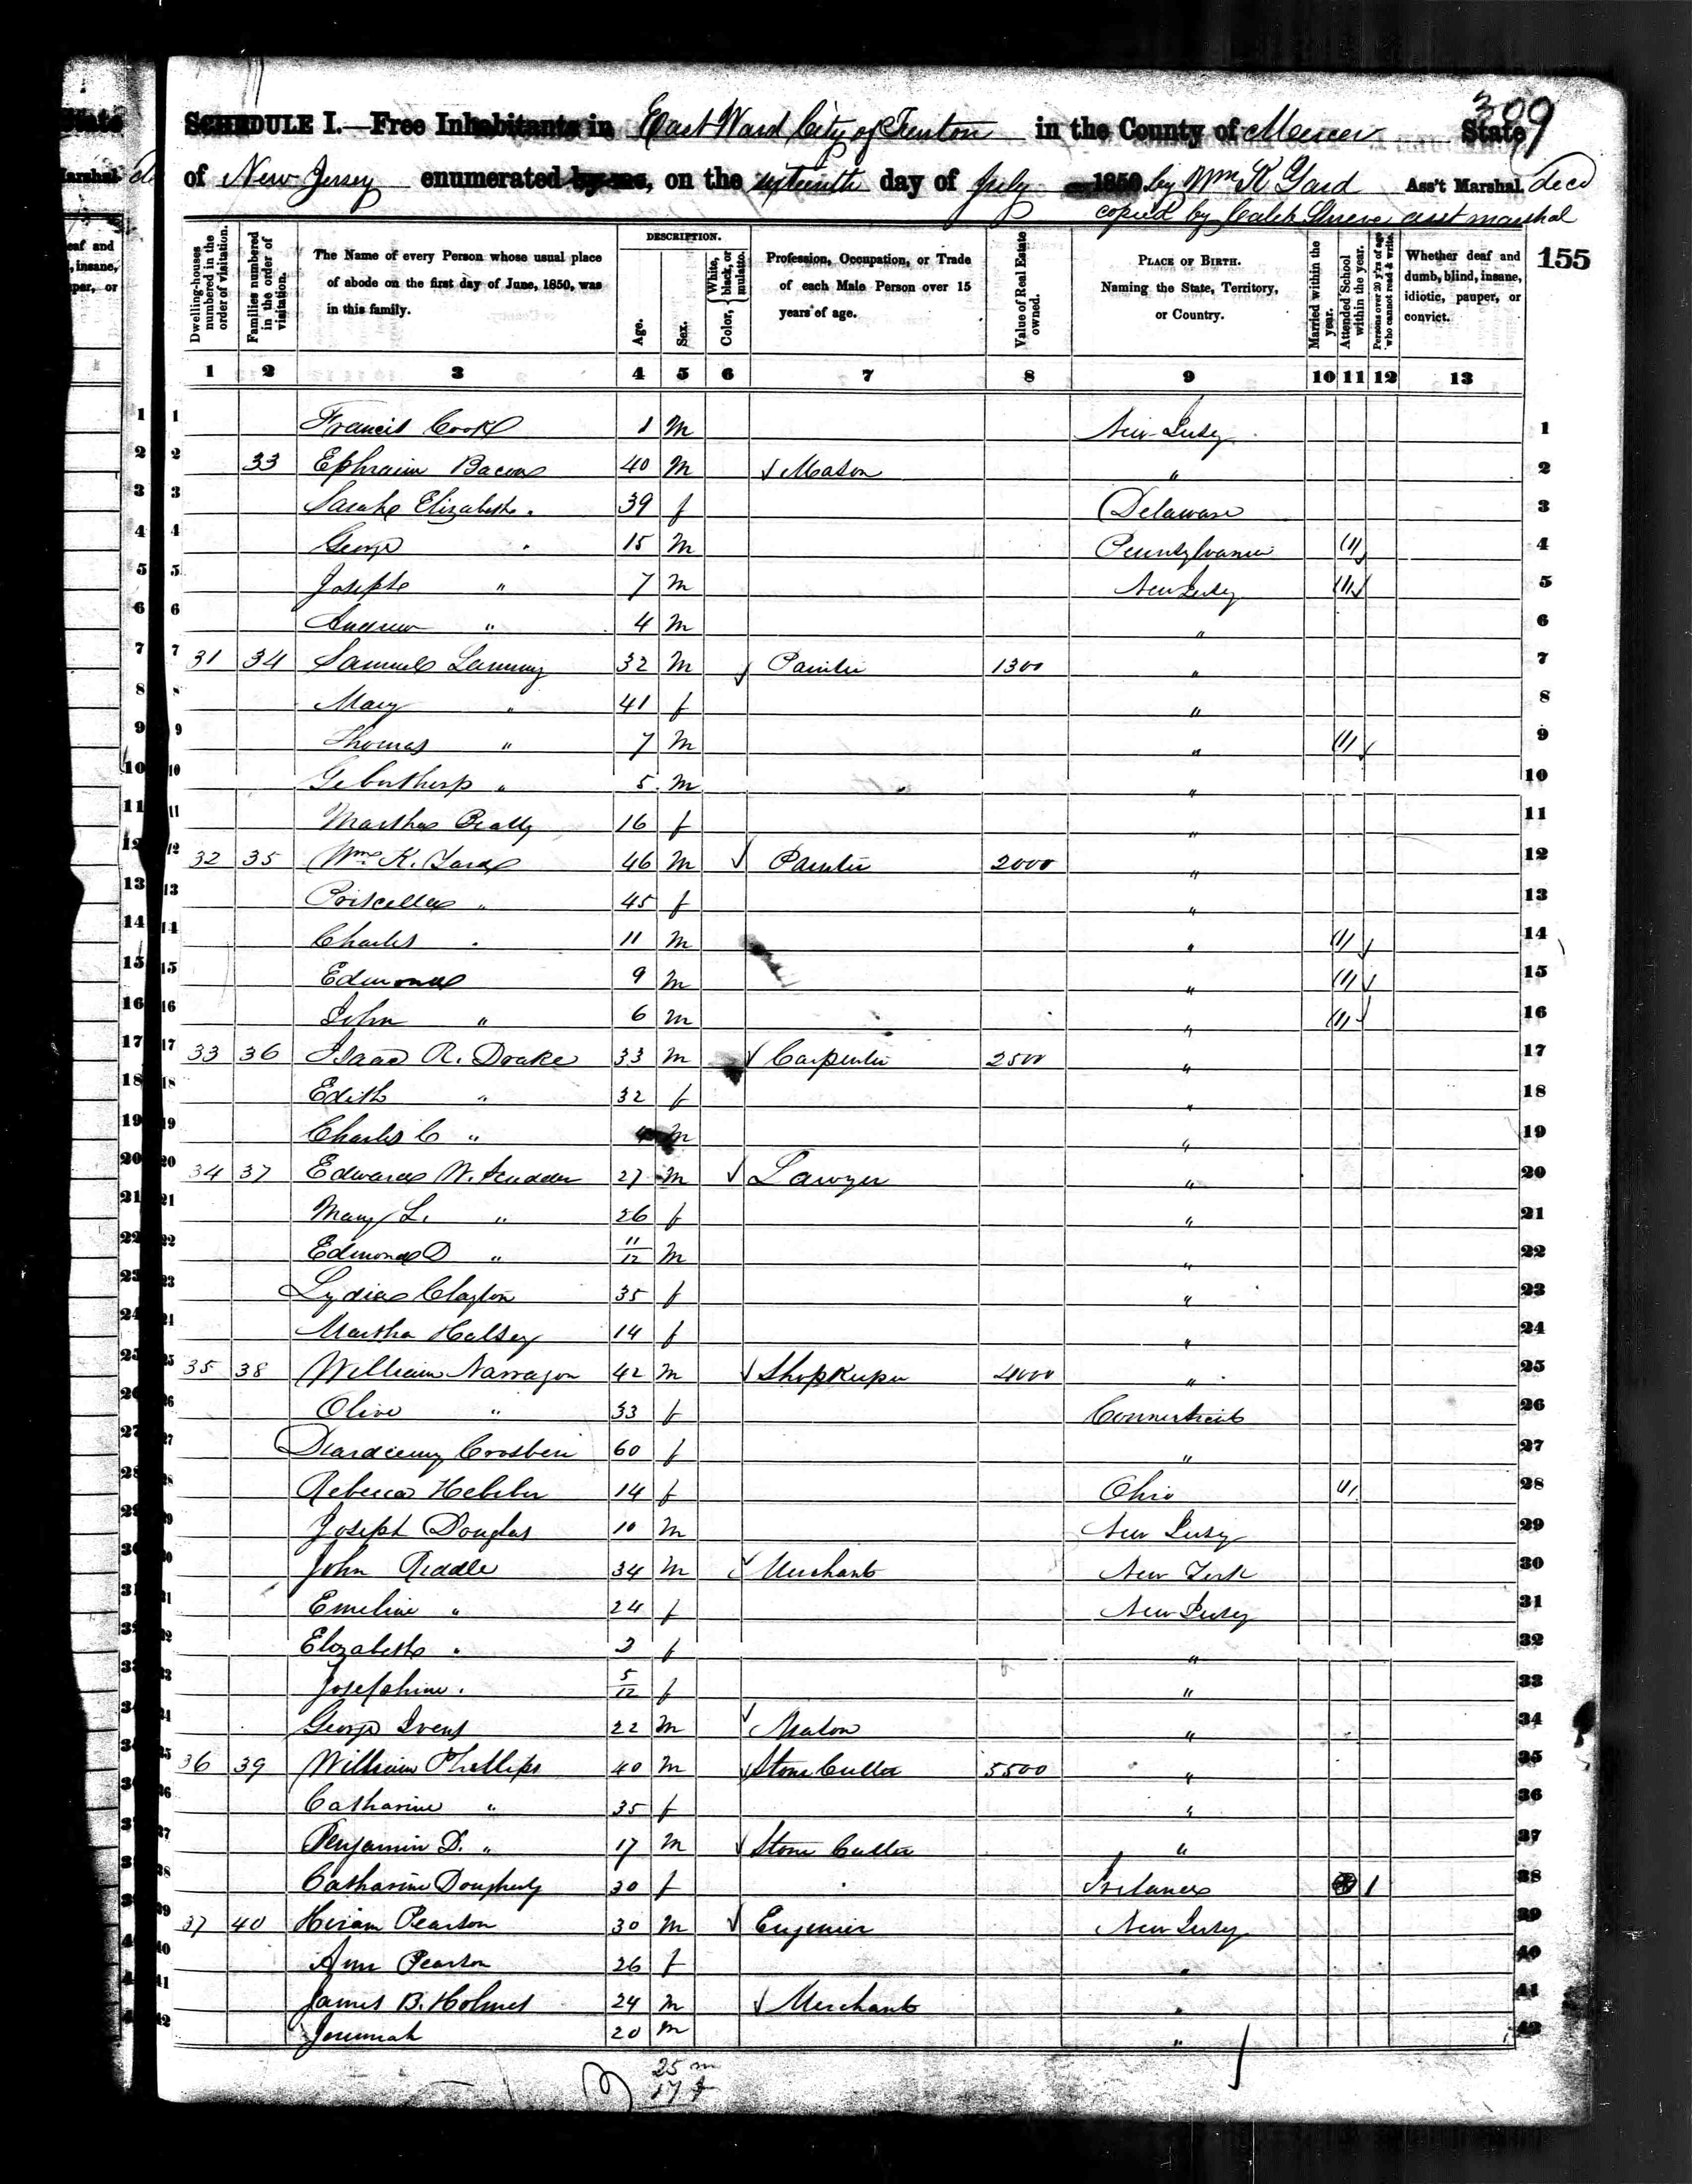 309
SCHEDULE I.—Free Inhabitants in East Ward City of Trenton in the County of Mercer State
of New Jersey enumerated by me, on the sixteenth day of July 1850 by Wm K Yard Ass't Marshal. decd
copied by Caleb Shreve asst marshal
155
Dwelling-houses numbered in the order of visitation.
Families numbered in the order of visitation.
The Name of every Person whose usual place of abode on the first day of June, 1850, was in this family.
DESCRIPTION.
Age.
Sex.
Color, { White, black, or mulatto.
Profession, Occupation, or Trade of each Male Person over 15 years of age.
Value of Real Estate owned.
PLACE OF BIRTH. Naming the State, Territory, or Country.
Married within the year.
Attended School within the year.
Persons over 20 y'rs of age who cannot read & write.
Whether deaf and dumb, blind, insane, idiotic, pauper, or convict.
1 2 3 4 5 6 7 8 9 10 11 12 13
1 Francis Cook 1 M New Jersey 1
2 33 Ephraim Bacon 40 M Mason " 2
3 Sarah Elizabeth " 39 f Delaware 3
4 George " 15 M Pennsylvania 1 4
5 Joseph " 7 M New Jersey 1 5
6 Andrew " 4 M " 6
7 31 34 Samuel Lanning 32 M Painter 1300 " 7
8 Mary " 41 f " 8
9 Thomas " 7 M " 1 9
10 " 5 M " 10
11 Martha Beatty 16 f " 11
12 32 35 Wm K. Yard 46 M Painter 2000 " 12
13 Priscilla " 45 f " 13
14 Charles " 11 M " 1 14
15 Edmond 9 M " 1 15
16 John " 6 M " 1 16
17 33 36 Isaac R. Drake 33 M Carpenter 2500 " 17
18 Edith " 32 f " 18
19 Charles C " 4 M " 19
20 34 37 Edward W. Scudder 27 M Lawyer " 20
21 Mary L. " 26 f " 21
22 Edmond D " 11/12 M " 22
23 Lydia Clayton 35 f " 23
24 Martha Halsey 14 f " 24
25 35 38 William Narragon 42 M Shopkeeper 4000 " 25
26 Olive " 33 f Connecticut 26
27 60 f " 27
28 Rebecca 14 f Ohio 1 28
29 Joseph Douglas 10 M New Jersey 29
30 John Riddle 34 M Merchant New York 30
31 Emeline " 24 f New Jersey 31
32 Elizabeth " 2 f " 32
33 Josephine " 5/12 f " 33
34 George Ivens 22 M Mason " 34
35 36 39 William Phillips 40 M Stone Cutter 5500 " 35
36 Catharine " 35 f " 36
37 Benjamin D. " 17 M Stone Cutter " 37
38 Catharine Dougherty 30 f Ireland 1 38
39 37 40 Hiram Pearson 30 M Engenier New Jersey 39
40 Ann Pearson 26 f " 40
41 James B. Holmes 24 M Merchant " 41
42 Jeremiah 20 M " 42
25 m
17 f